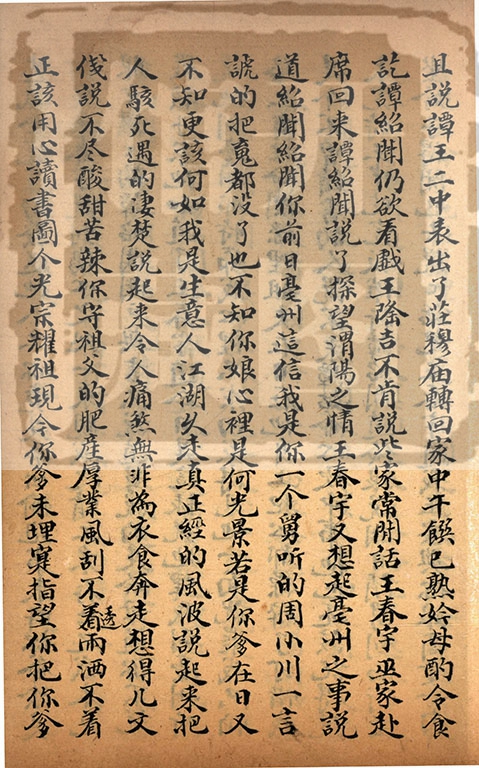 且說譚王二中表出了莊穆庙轉回家中午饌已熟妗母酌令食
訖譚紹聞仍欲看戲王隆吉不肯說些家常閒話王春宇巫家赴
席回来譚紹聞說了探望渭陽之情王春宇又想起亳州之事說
道紹聞紹聞你前日亳州這信我是你一个舅听的周小川一言
諕的把䰟都没了也不知你娘心裡是何光景若是你爹在日又
不知更該何如我是生意人江湖久走真正經的風波說起来把
人駭死遇的凄楚說起来令人痛煞無非為衣食奔走想得几文
伐說不尽酸甜苦辣你守祖父的肥產厚業風刮不着雨洒不着
透
正該用心讀書啚个光宗耀祖現今你爹未埋寔指望你把你爹